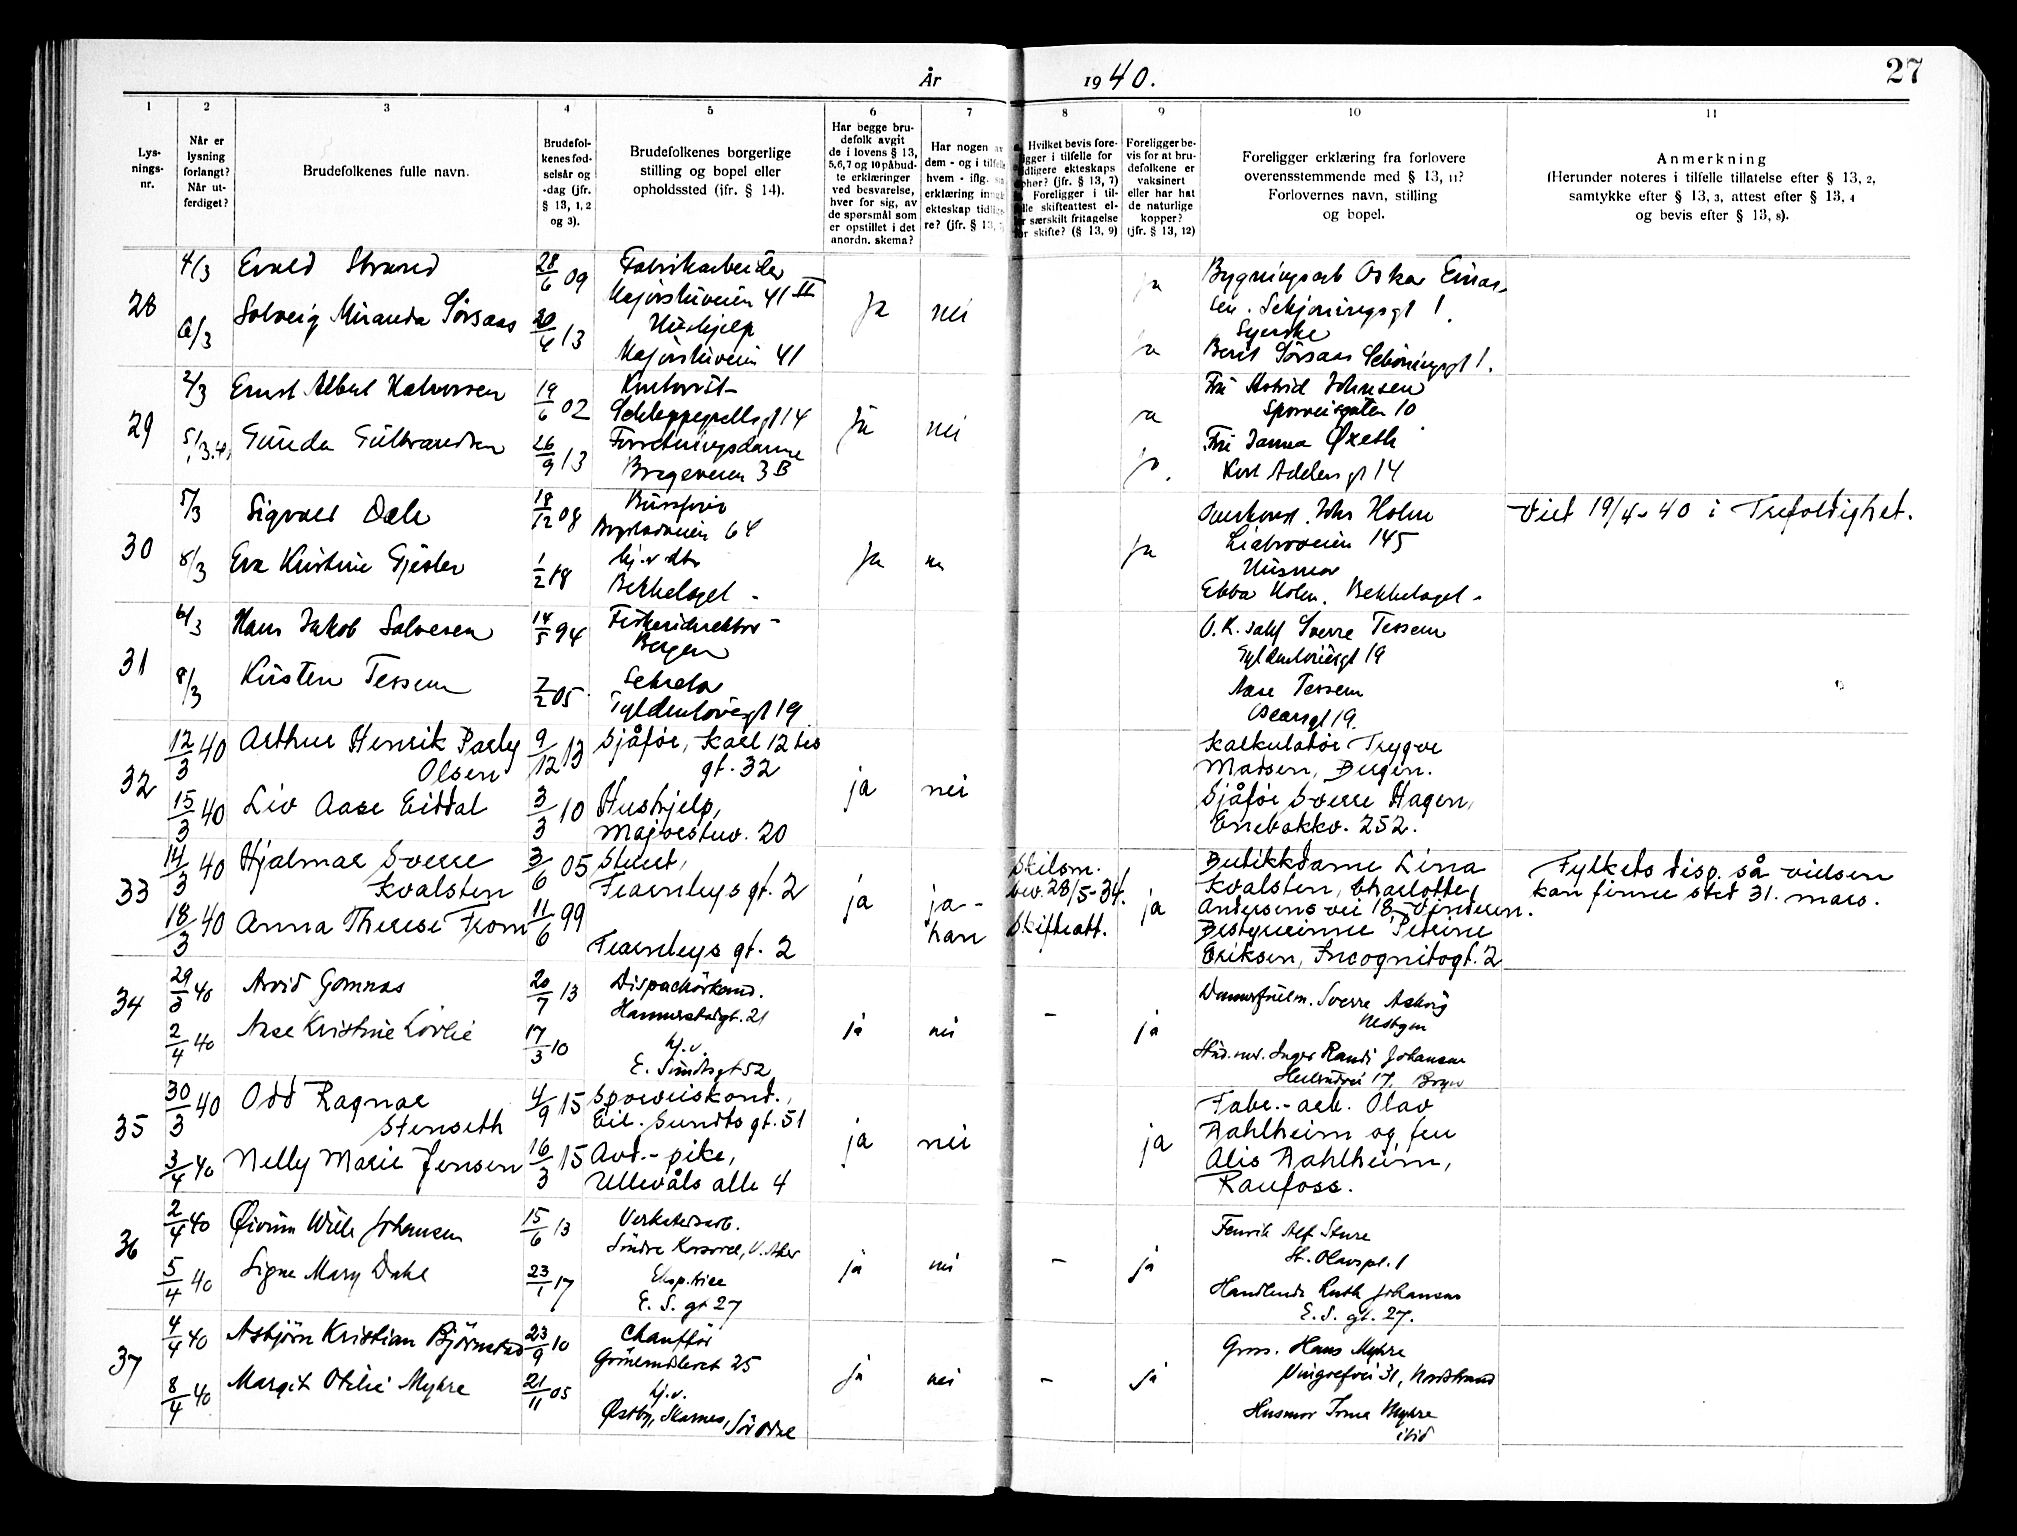 År 1940.
27
1
2
3
4
5
6
7
8
9
10
11
Lys-
nings-
nr.
Når er
lysning
forlangt?
Når ut-
ferdiget?
Brudefolkenes fulle navn.
Brudefol-
kenes fød-
selsår og
-dag (jfr.
§ 13, 1, 2
og 3).
Brudefolkenes borgerlige
stilling og bopel eller
opholdssted (jfr. § 14).
Har begge bru-
defolk avgit
de i lovens § 13,
5,6,7 og 10 påbud-
te erklæringer
ved besvarelse,
hver for sig, av
de spørsmål som
er opstillet i det
anordn. skema?
Har nogen av
dem - og i tilfelle
hvem - iflg.
erklæring inngått
ekteskap tidlige-
re? (jfr. § 13,
Hvilket bevis fore-
ligger i tilfelle for
tidligere ekteskaps
ophør? (jfr. § 13, 7)
Foreligger i til-
felle skifteattest el-
ler særskilt fritagelse
for skifte? (§ 13, 9)
Foreligger be-
vis for at bru-
defolkene er
vaksinert
eller har hat
de naturlige
kopper?
(jfr. § 13, 12)
Foreligger erklæring fra forlovere
overensstemmende med § 13, 11?
Forlovernes navn, stilling
og bopel.
Anmerkning
(Herunder noteres i tilfelle tillatelse efter § 13, 2,
samtykke efter § 13, 3, attest efter § 13, 4
og bevis efter § 13, 8).
28
4/3 Evald Strand 28/6 09 Fabrikarbeider
Majorstuveien 41 II
6/3 Solveig Miranda Sørsaas 20/4 13 Hushjelp
Majorstuveien 41
ja nei ja
ja
Bygningsarb Oskar Einar-
sen. Schjøningsgt 1.
Syerske
Berit Sørsaas Schøningsgt 1.
29
2/3 Ernst Albert Halvorsen 19/6 02 Kontorist
Schleppegrellsgt 14
5/3.40 Gunda Gulbrandsen 26/9 13 Forretningsdame
Bregneveien 3B
ja nei ja
ja.
Fru Astrid Johnsen
Sporveisgaten 10
Fru Janna Øxeth
Kort Adelersgt 14
30
5/3 Sigvald Dale 18/12 08 Bussfører
Bygdøveien 64
8/3 Eva Kristine Gjesler 1/2 18 hj.v. dtr
Bekkelaget -
ja nei ja
Joh. Holm
Liabroveien 145
Husmor
Ebba Holm. Bekkelaget -
Viet 19/4-40 i Trefoldighet.
31
6/3 Hans Jakob Salvesen 14/5 94 Fiskeridirektør -
Bergen
8/3 Kirsten Tessem 7/2 05 Sekretær
Gyldenløvesgt 19
O.R. sakf Sverre Tessem
Gyldenløvesgt 19
Aase Tessem
Oscarsgt 19.
32
12/3 40 Arthur Henrik Parly
Olsen 9/12 13 Sjåfør, Karl 12 tes
gt. 32
15/3 40 Liv Aase Eiddal 3/3 10 Hushjelp,
Majorstuv. 20
ja nei
Kalkulatør Trygve
Madsen, Bergen.
Sjåfør Sverre Hagen,
Enebakkv. 252.
33
14/3 40 Hjalmar Sverre
Kvalsten 3/6 05 Stuert,
Fearnleys gt. 2
18/3 40 Anna Therese From 11/6 99
Fearnleys gt. 2
ja ja -
han
Skilsm.
bev. 28/5-34.
Skifteatt.
ja
Butikkdame Lina
Kvalsten, Charlotte
Andersens vei 18 Vinderen.
Bestyrerinne Petrine
Eriksen, Incognitogt. 2
Fylkets disp. så vielsen
kan finne sted 31. mars.
34
29/3 40 Arvid Gomnæs 20/7 13 Dispachörkand.
Hammerstadgt. 21
2/4 40 Aase Kristine Lövlie 17/3 10 hj.v.
E. Sundtsgt 52
ja nei - ja
Sverre Asbjörn
Nestgen
Inger Randi Johansen
17. Bryn
35
30/3 40 Odd Ragnar
Stenseth 4/9 15 Sporveiskond.,
Eil. Sundts gt. 51
3/4 40 Nelly Marie Jensen 16/3 15 Avd.- pike,
Ullevåls alle 4
ja nei ja
Fabr.- arb. Olav
Dahlheim og fru
Alis Dahlheim,
Raufoss.
36
2/4 40 Øivinn Wille Johansen 15/6 13 Verkstedsarb.
Søndre V. Aker
5/4 40 Signe Mary Dahl 23/1 17 Eksp.trice
E. S. gt 27
ja nei - ja
Fenrik Alf Sture
St. Olavspl. 1
Handlende Ruth Johansen
E. S. gt. 27.
37
4/4 40 Asbjörn Kristian Björnstad 23/9 10 Chauffør
25
8/4 40 Margit Otilie Myhre 21/11 05 hj.v.
Østby, Skarnes, Sør Odal
ja nei - ja
Gross. Hans Myhre
31, Nordstrand
Husmor Myhre
ibid